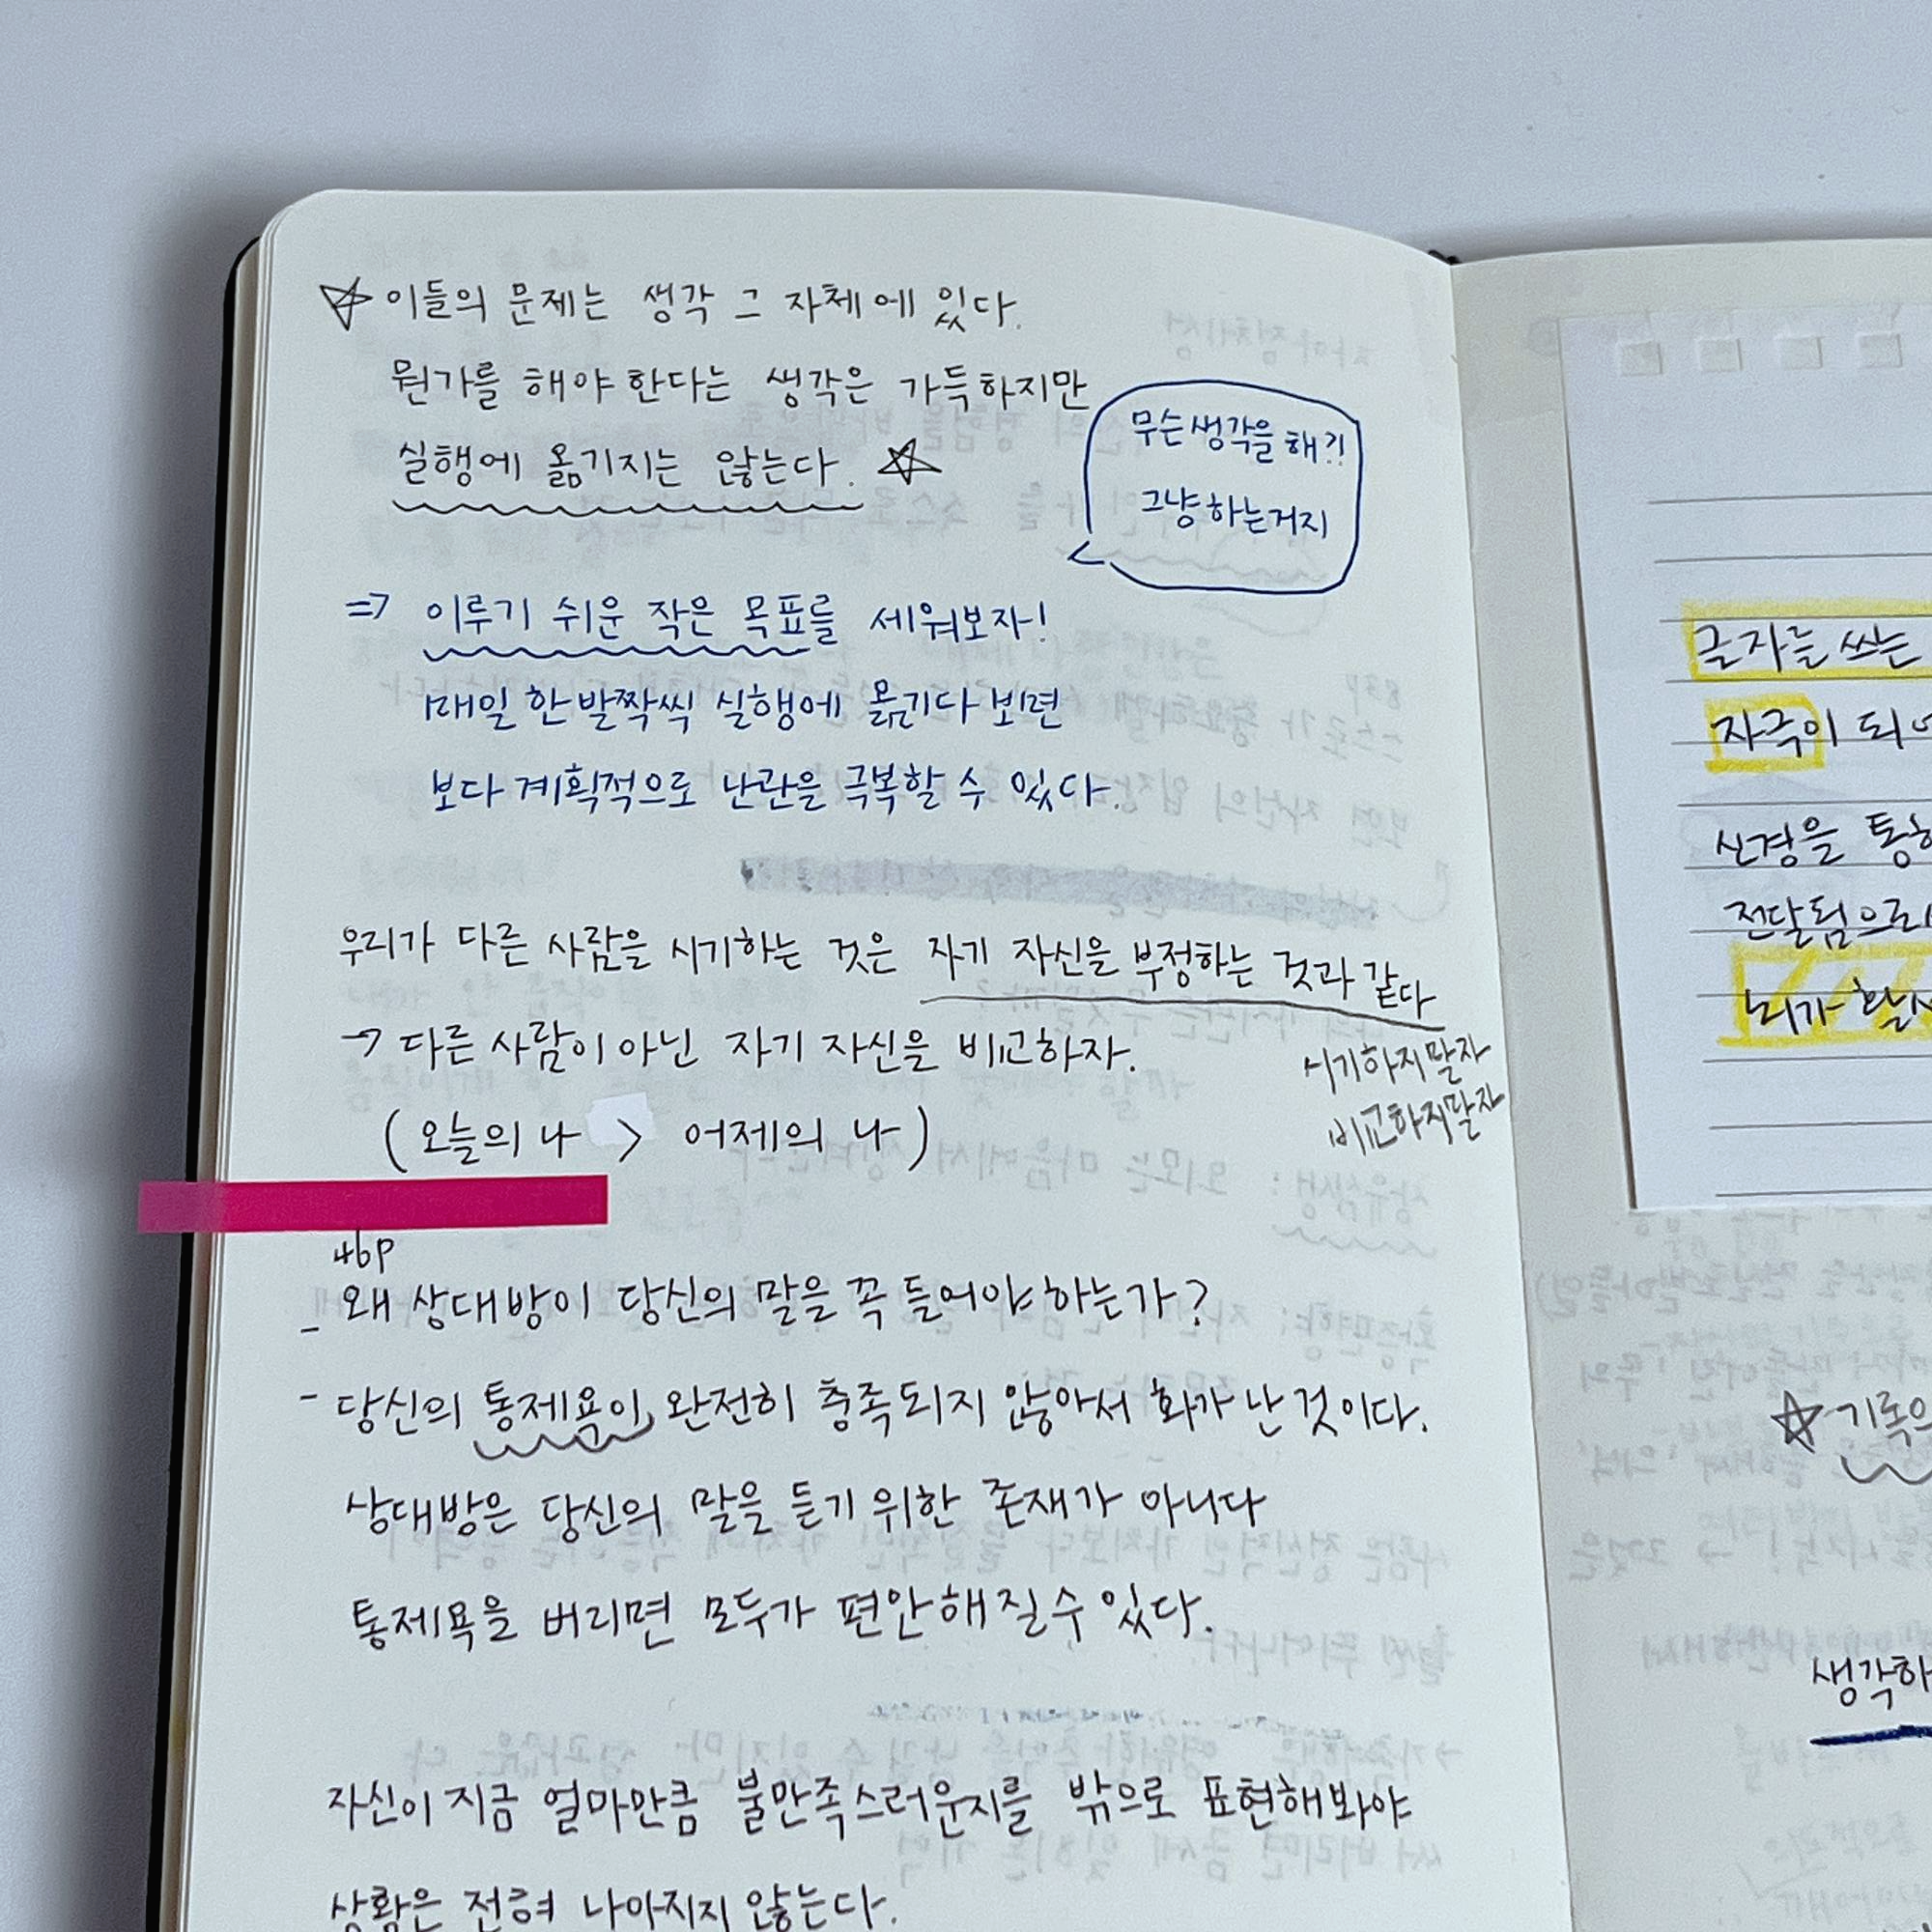 ☆ 이들의 문제는 생각 그 자체에 있다.
뭔가를 해야 한다는 생각은 가득하지만
실행에 옮기지는 않는다. ☆
무슨 생각을 해?!
그냥 하는거지
=> 이루기 쉬운 작은 목표를 세워보자!
매일 한 발짝씩 실행에 옮기다 보면
보다 계획적으로 난관을 극복할 수 있다.
우리가 다른 사람을 시기하는 것은 자기 자신을 부정하는 것과 같다
→ 다른 사람이 아닌 자기 자신을 비교하자.
시기하지말자
비교하지말자
(오늘의 나 > 어제의 나)
46p
- 왜 상대방이 당신의 말을 꼭 들어야 하는가?
- 당신의 통제욕이 완전히 충족되지 않아서 화가 난 것이다.
상대방은 당신의 말을 듣기 위한 존재가 아니다
통제욕을 버리면 모두가 편안해질 수 있다.
자신이 지금 얼마만큼 불만족스러운지를 밖으로 표현해봐야
상황은 전혀 나아지지 않는다.
글자를 쓰는
자극이 되어
신경을 통해
전달됨으로
뇌가 활
☆ 기록은
생각하